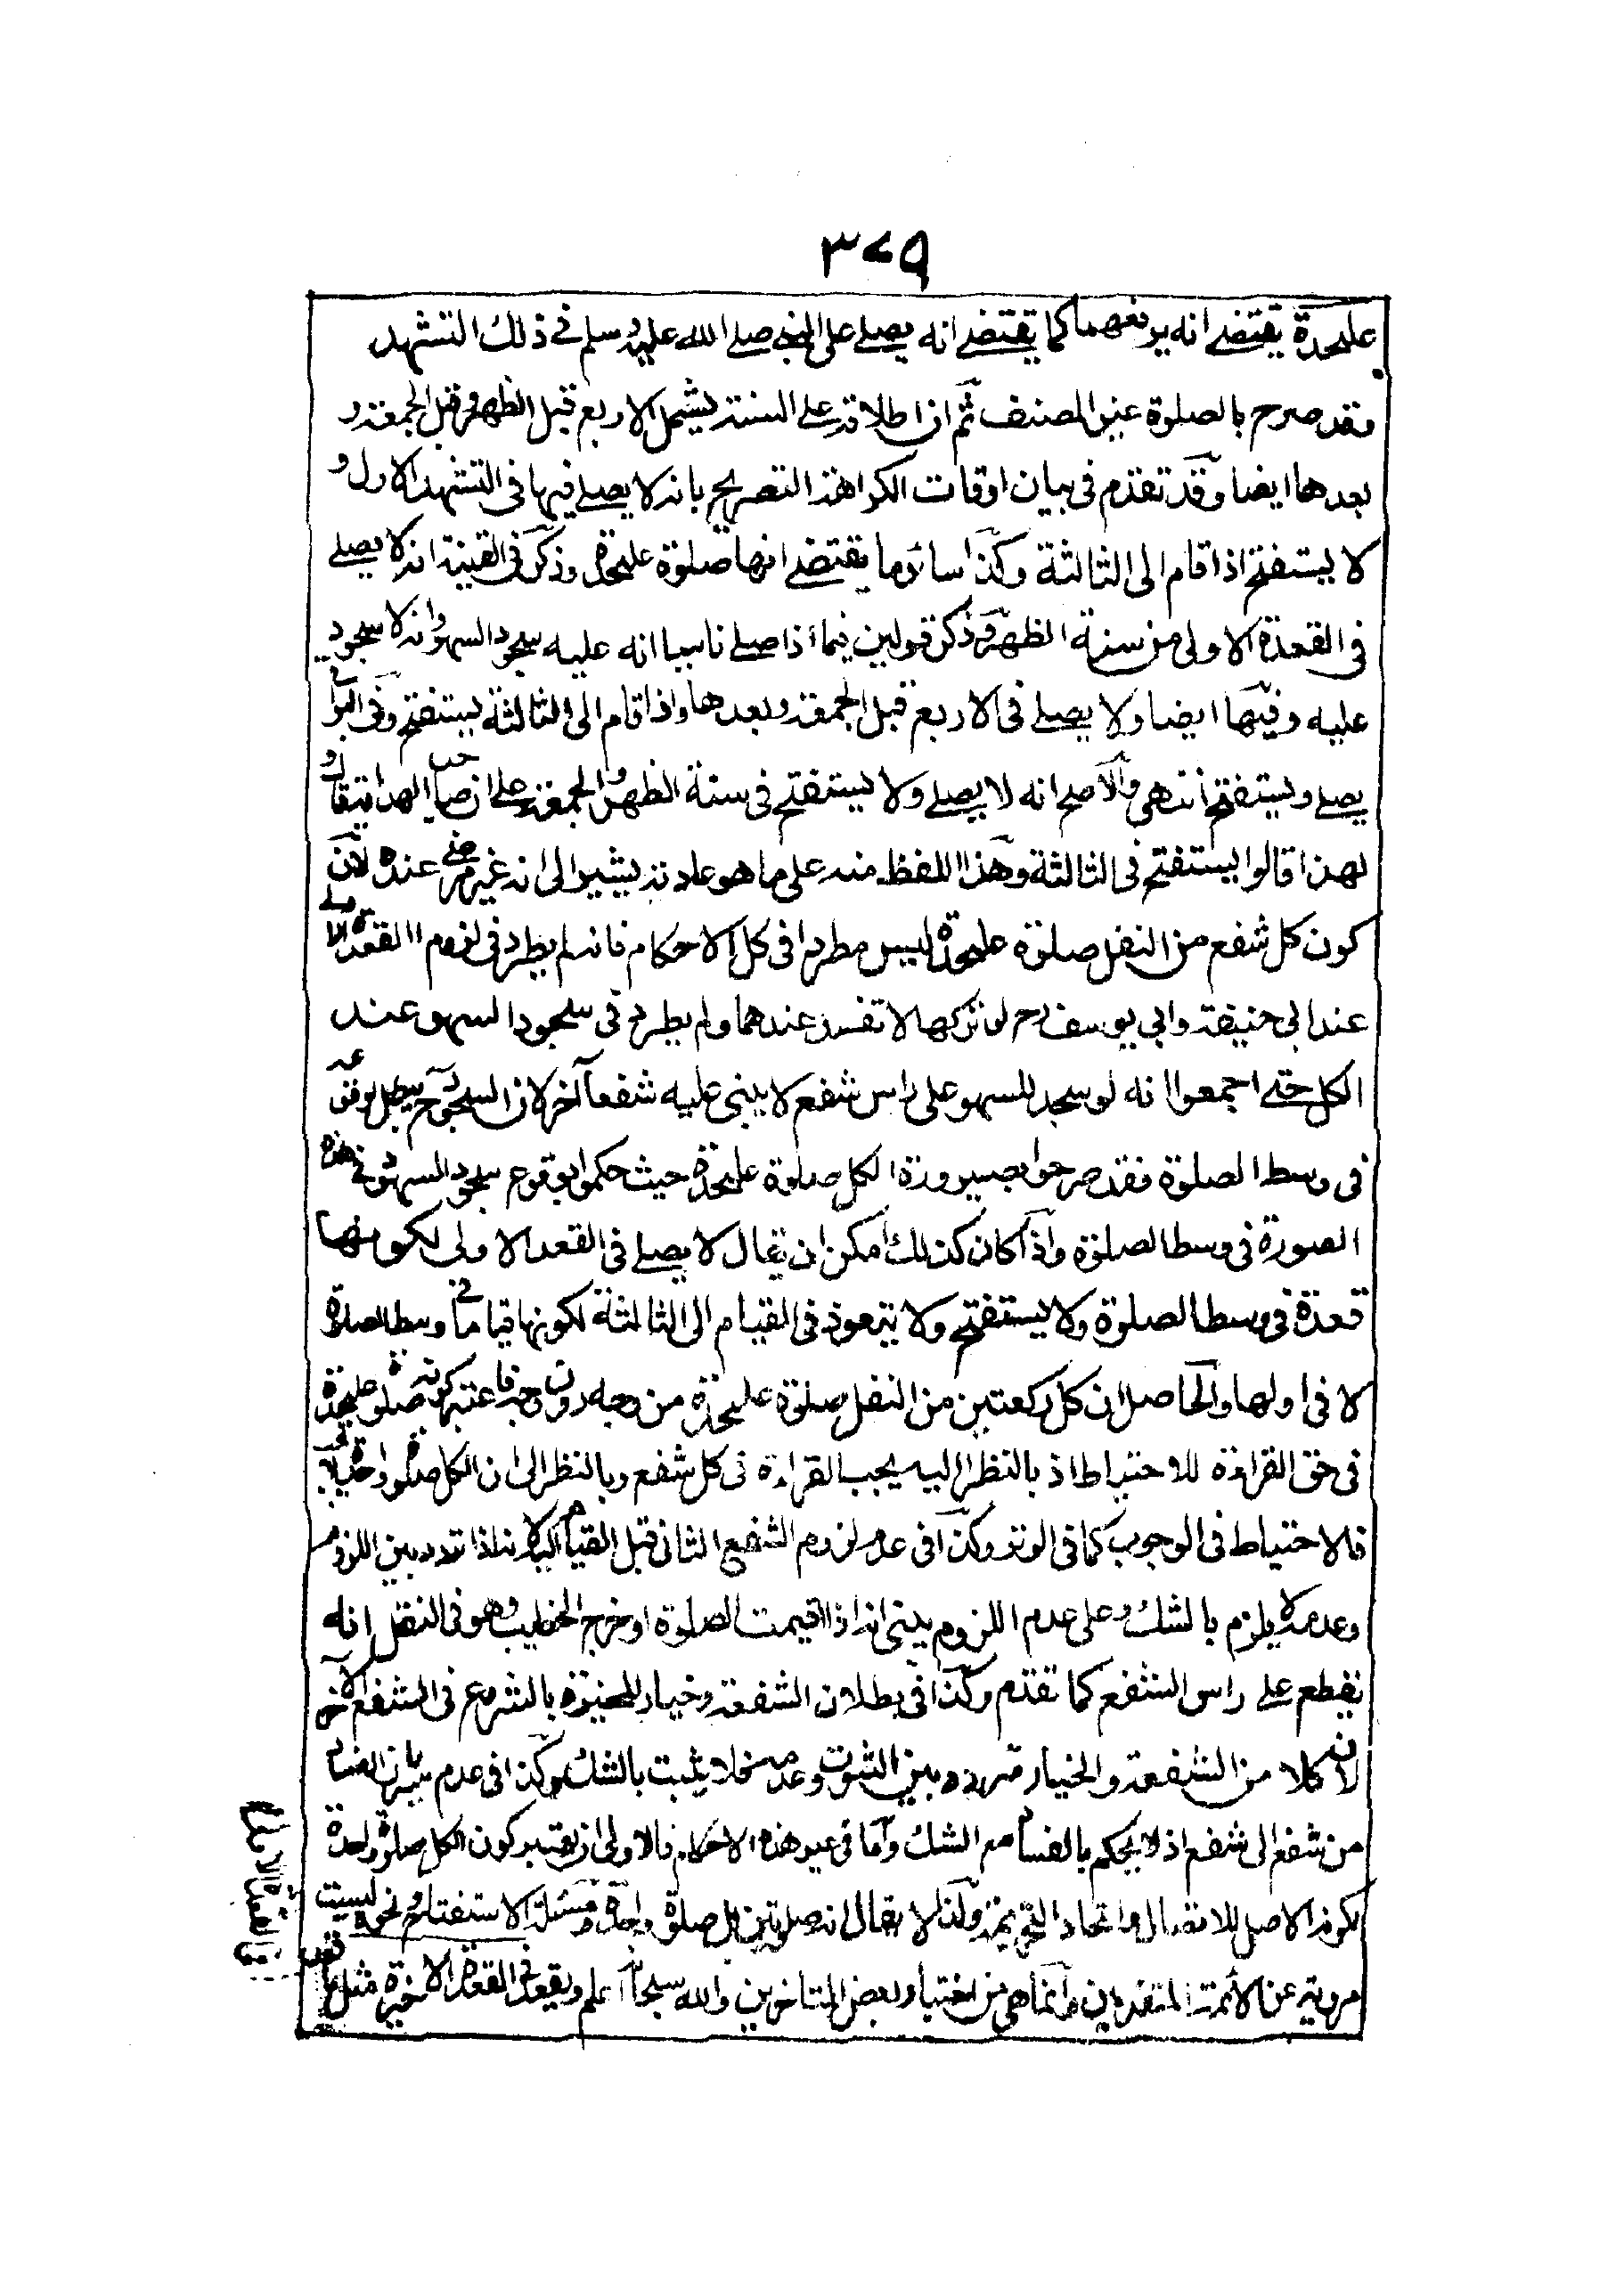 ٣٧٩
عليحدة يقتضى انه يرفعهما كما يقتضى انه يصلى على النبى صلى الله عليه وسلم فى ذلك التشهد
فقد صرح بالصلوة غير المصنف ثم ان اطلاقه على السنة يشمل الاربع قبل الظهر وقبل الجمعة و
بعدها ايضا وقد تقدم فى بيان اوقات الكراهة التصريح بانه لا يصلى فيها فى التشهد الاول و
لا يستفتح اذا قام الى الثالثة وكذا سائر ما يقتضى انها صلوة عليحدة وذكر فى القنية انه لا يصلى
فى القعدة الاولى من سنة الظهر وذكر قولين فيما اذا صلى ناسيا انه عليه سجود السهو وانه لا سجود
عليه وفيها ايضا ولا يصلى فى الاربع قبل الجمعة وبعدها واذا قام الى الثالثة يستفتح وفى البواقى
يصلى ويستفتح انتهى والاصح انه لا يصلى ولا يستفتح فى سنة الظهر والجمعة على ان صاحب الهداية قال و
لهذا قالوا يستفتح فى الثالثة وهذا اللفظ منه على ما هو عادته يشير الى انه غير مرضى عنده لان
كون كل شفع من النفل صلوة عليحدة ليس مطردا فى كل الاحكام فانه لم يطرد فى لزوم القعدة الاولى
عند ابى حنيفة وابى يوسف رح لو تركها لا تفسد عندهما ولم يطرد فى سجود السهو عند
الكل حتى اجمعوا انه لو سجد للسهو على راس شفع لا يبنى عليه شفعا آخر لان السجود ح يبطل لوقوعه
فى وسط الصلوة فقد صرحوا بصيرورة الكل صلوة عليحدة حيث حكموا بوقوع سجود السهو فى هذه
الصورة فى وسط الصلوة واذا كان كذلك امكن ان يقال لا يصلى فى القعد الاولى لكونها
قعدة فى وسط الصلوة ولا يستفتح ولا يتعوذ فى القيام الى الثالثة لكونها قياما فى وسط الصلوة
لا فى اولها والحاصل ان كل ركعتين من النفل صلوة عليحدة من وجه دون وجه فاعتبر كونه صلوة عليحدة
فى حق القراءة للاحتياط اذ بالنظر اليه يجب القراءة فى كل شفع وبالنظر الى ان الكل صلوة واحدة لا تجب
فالاحتياط فى الوجوب كما فى الوتر وكذا فى عدم لزوم الشفع الثانى قبل القيام اليه لانه اذا تردد بين اللزوم
وعدمه لا يلزم بالشك وعلى عدم اللزوم يبتنى انه اذا اقيمت الصلوة او خرج الخطيب وهو فى النفل انه
يقطع على راس الشفع كما تقدم وكذا فى بطلان الشفعة وخيار المخيرة بالشروع فى الشفع الآخر
لان كلا من الشفعة والخيار متردد بين الثبوت وعدمه فلا يثبت بالشك وكذا فى عدم سريان الفساد
من شفع الى شفع اذ لا يحكم بالفساد مع الشك واما فى غير هذه الاحكام فالاولى ان يعتبر كون الكل صلوة واحدة
لكونه الاصل للاتصال واتحاد التحريمة ولذا لا يقال انه صلوتين بل صلوة واحدة ومسئلة الاستفتاح ونحوه ليست
مروية عن الائمة المتقدمين وانما هى من اختيار بعض المتاخرين والله سبحانه اعلم ويقعد فى القعدة الاخيرة مثل ما